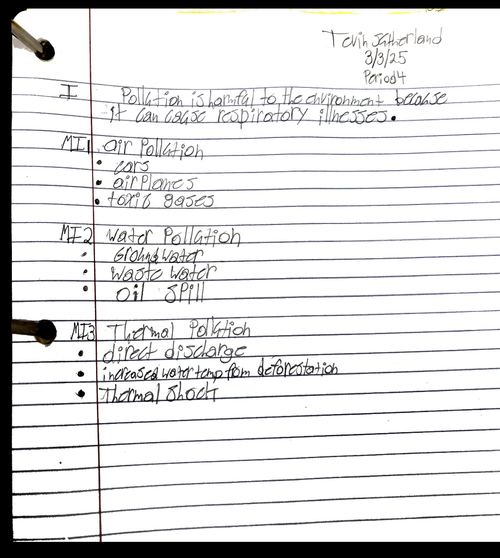 Tevin Sutherland
3/3/25
Period 4
I Pollution is harmful to the environment because
it can cause respiratory illnesses.
MI1 air Pollution
• cars
• airplanes
• toxic gases
MI2 Water Pollution
• Ground water
• waste water
• oil spill
MI3 Thermal Pollution
• direct discharge
• increased water temp from deforestation
• Thermal Shock